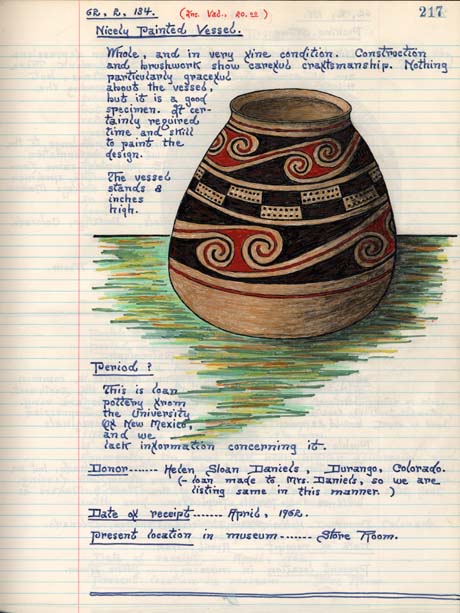 62. 2. 134. (Ins. Val., 20.00) 217
Nicely Painted Vessel.
Whole, and in very fine condition. Construction
and brushwork show careful craftsmanship. Nothing
particularly graceful
about the vessel,
but it is a good
specimen. It cer-
tainly required
time and skill
to paint the
design.
The vessel
stands 8
inches
high.
Period ?
This is loan
pottery from
the University
of New Mexico,
and we
lack information concerning it.
Donor------- Helen Sloan Daniels, Durango, Colorado.
(- loan made to Mrs. Daniels, so we are
listing same in this manner. )
Date of receipt------- April, 1962.
Present location in museum------- Store Room.